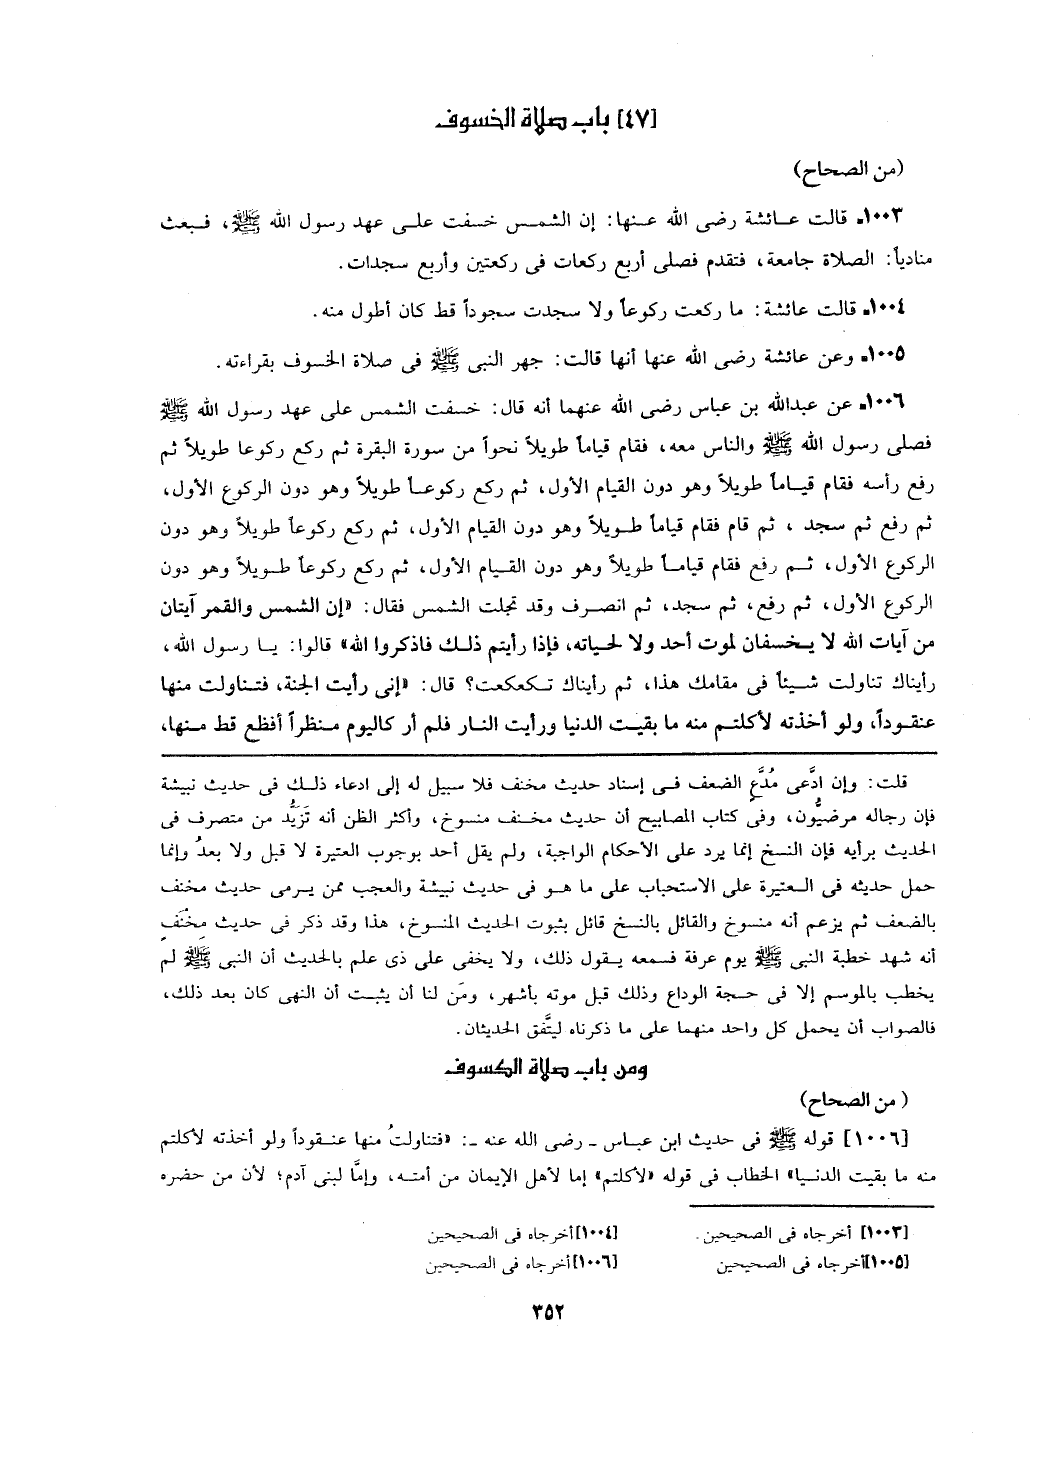 [٤٧] باب صلاة الخسوف
(من الصحاح)
١٠٠٣ـ قالت عائشة رضى الله عنها: إن الشمس خسفت على عهد رسول الله ﷺ، فبعث
منادياً: الصلاة جامعة، فتقدم فصلى أربع ركعات فى ركعتين وأربع سجدات.
١٠٠٤ـ قالت عائشة: ما ركعت ركوعاً ولا سجدت سجوداً قط كان أطول منه.
١٠٠٥ـ وعن عائشة رضى الله عنها أنها قالت: جهر النبى ﷺ فى صلاة الخسوف بقراءته.
١٠٠٦ـ عن عبدالله بن عباس رضى الله عنهما أنه قال: خسفت الشمس على عهد رسول الله ﷺ
فصلى رسول الله ﷺ والناس معه، فقام قياماً طويلاً نحواً من سورة البقرة ثم ركع ركوعا طويلاً ثم
رفع رأسه فقام قياماً طويلاً وهو دون القيام الأول، ثم ركع ركوعاً طويلاً وهو دون الركوع الأول،
ثم رفع ثم سجد ، ثم قام فقام قياماً طويلاً وهو دون القيام الأول، ثم ركع ركوعاً طويلاً وهو دون
الركوع الأول، ثم رفع فقام قياماً طويلاً وهو دون القيام الأول، ثم ركع ركوعاً طويلاً وهو دون
الركوع الأول، ثم رفع، ثم سجد، ثم انصرف وقد تجلت الشمس فقال: «إن الشمس والقمر آيتان
من آيات الله لا يخسفان لموت أحد ولا لحياته، فإذا رأيتم ذلك فاذكروا الله» قالوا: يا رسول الله،
رأيناك تناولت شيئاً فى مقامك هذا، ثم رأيناك تكعكعت؟ قال: «إنى رأيت الجنة، فتناولت منها
عنقوداً، ولو أخذته لأكلتم منه ما بقيت الدنيا ورأيت النار فلم أر كاليوم منظراً أفظع قط منها،
قلت: وإن ادَّعى مُدَّعٍ الضعف فى إسناد حديث مخنف فلا سبيل له إلى ادعاء ذلك فى حديث نبيشة
فإن رجاله مرضيُّون، وفى كتاب المصابيح أن حديث مخنف منسوخ، وأكثر الظن أنه تَزَيُّد من متصرف فى
الحديث برأيه فإن النسخ إنما يرد على الأحكام الواجبة، ولم يقل أحد بوجوب العتيرة لا قبل ولا بعدُ وإنما
حمل حديثه فى العتيرة على الاستحباب على ما هو فى حديث نبيشة والعجب ممن يرمى حديث مخنف
بالضعف ثم يزعم أنه منسوخ والقائل بالنسخ قائل بثبوت الحديث المنسوخ، هذا وقد ذكر فى حديث مِخْنَفٍ
أنه شهد خطبة النبى ﷺ يوم عرفة فسمعه يقول ذلك، ولا يخفى على ذى علم بالحديث أن النبى ﷺ لم
يخطب بالموسم إلا فى حجة الوداع وذلك قبل موته بأشهر، ومَن لنا أن يثبت أن النهى كان بعد ذلك،
فالصواب أن يحمل كل واحد منهما على ما ذكرناه ليتَّفق الحديثان.
ومن باب صلاة الكسوف
( من الصحاح)
[١٠٠٦] قوله ﷺ فى حديث ابن عباس ـ رضى الله عنه ـ: «فتناولتُ منها عنقوداً ولو أخذته لأكلتم
منه ما بقيت الدنيا» الخطاب فى قوله «لأكلتم» إما لأهل الإيمان من أمته، وإمَّا لبنى آدم؛ لأن من حضره
[١٠٠٣] أخرجاه فى الصحيحين.
[١٠٠٤]أخرجاه فى الصحيحين
[١٠٠٥]أخرجاه فى الصحيحين
[١٠٠٦]أخرجاه فى الصحيحين
٣٥٢